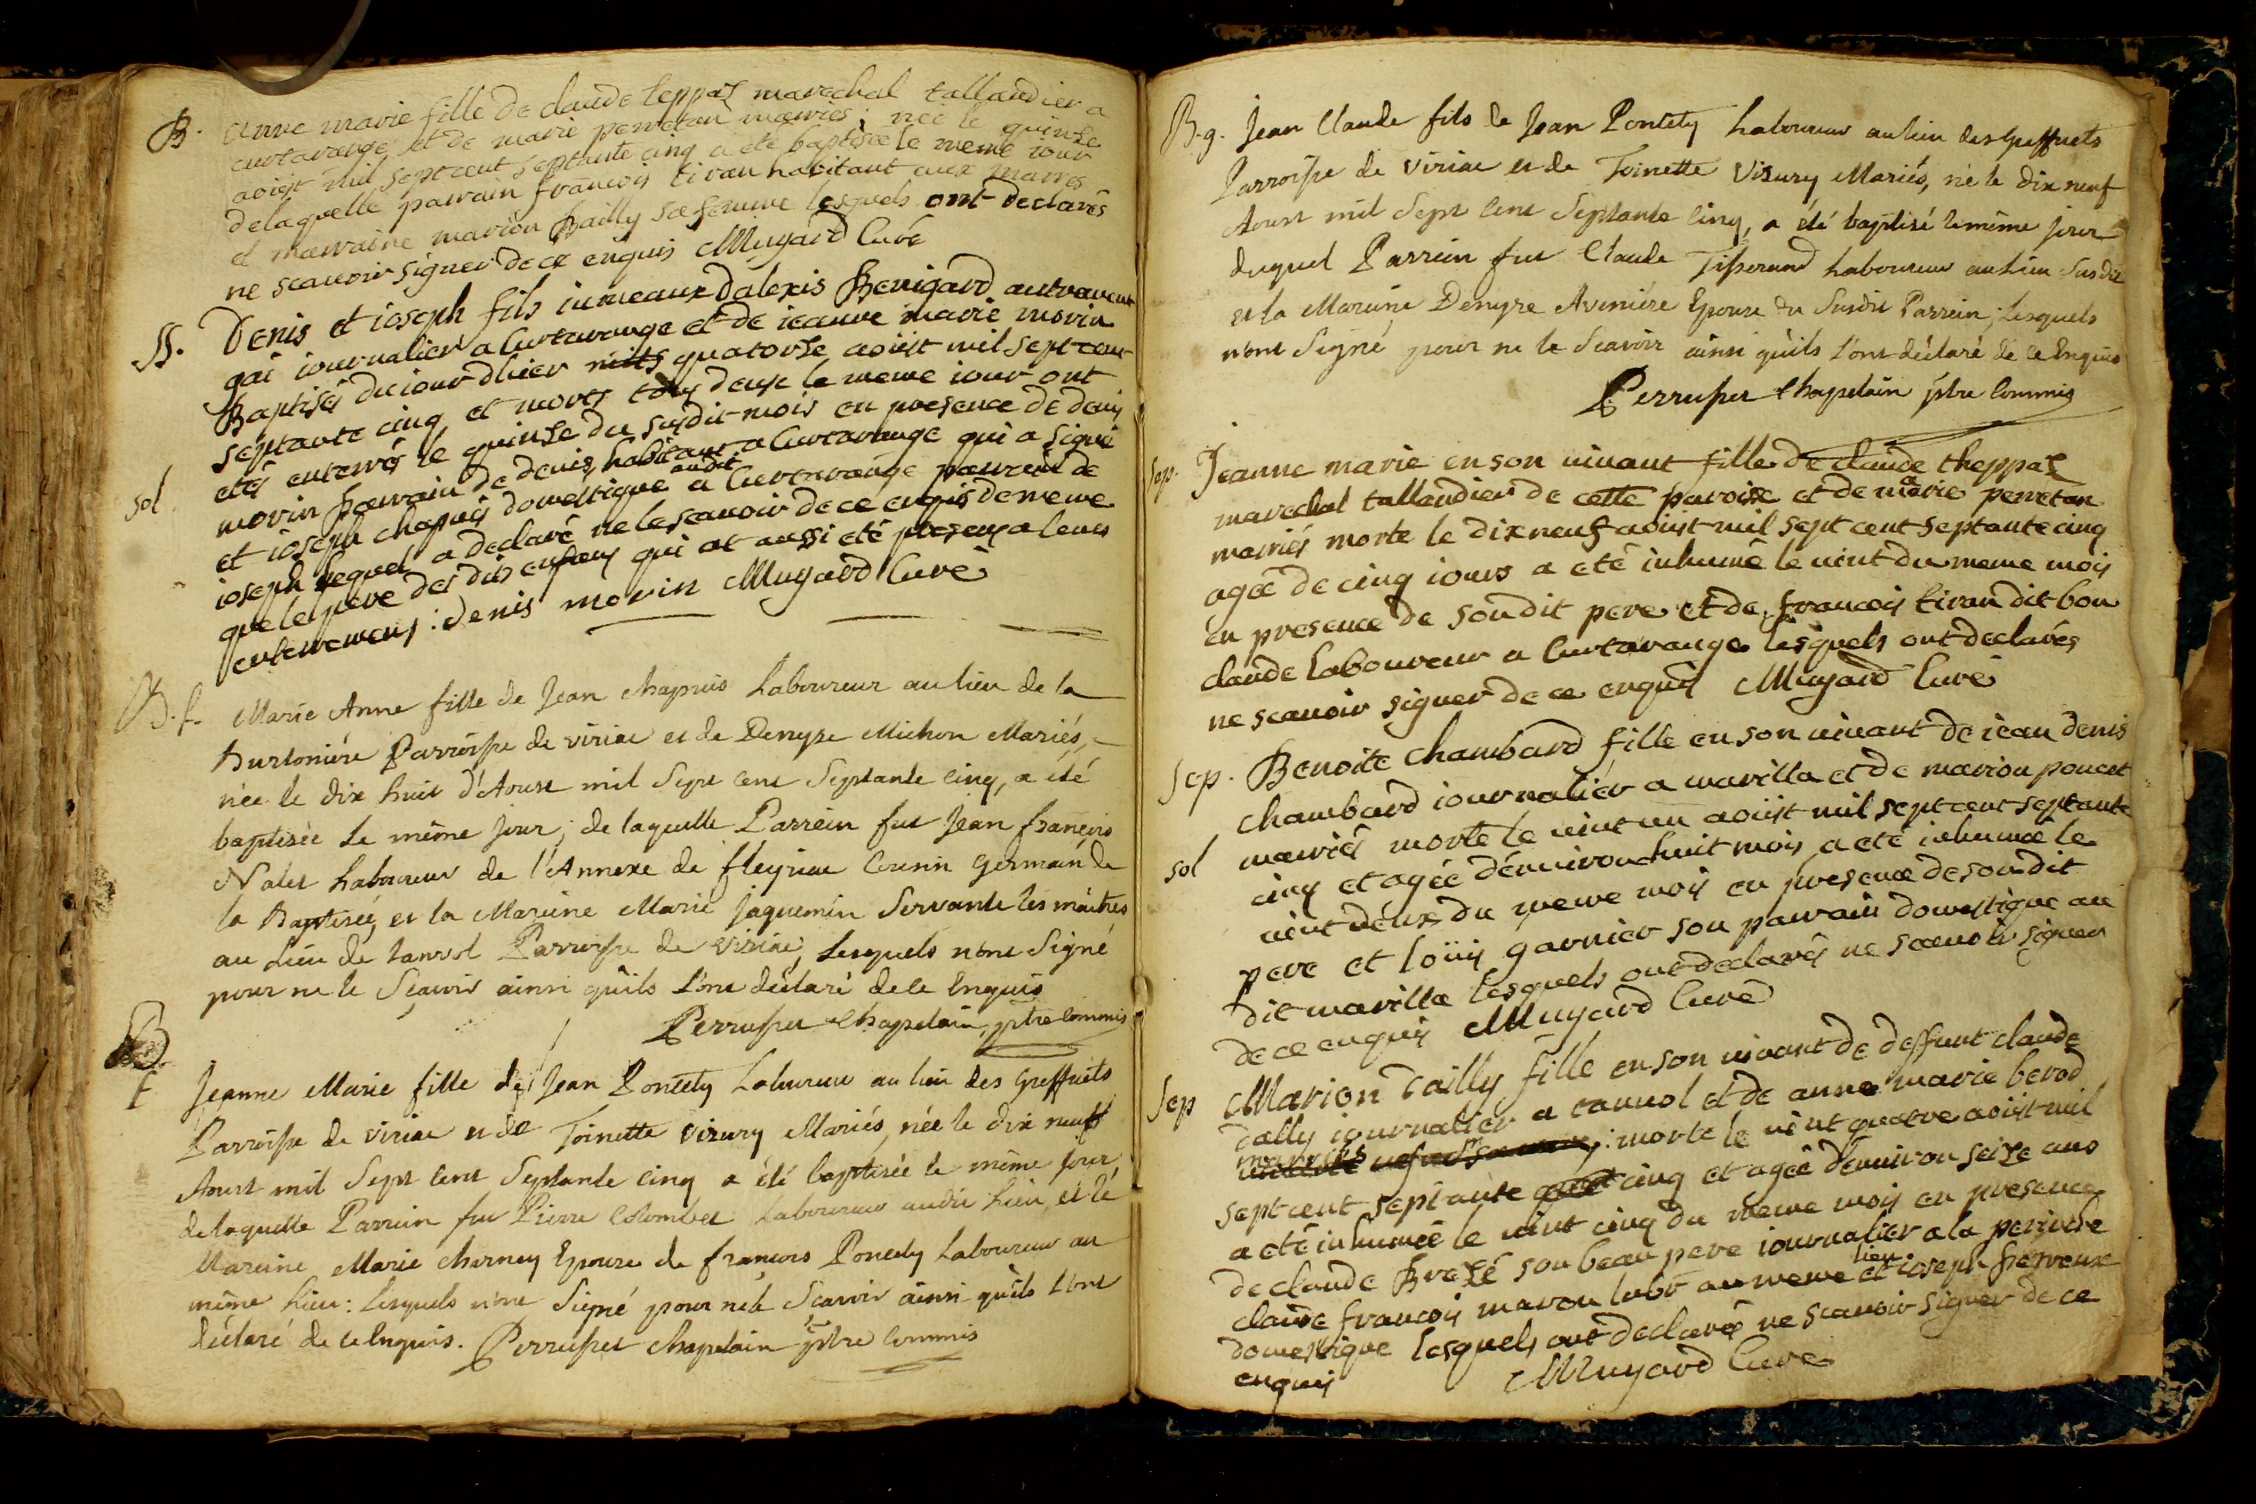 B. anne marie fille de claude teppaz marechal tallandier a
curtarange et de marie perretan mariés; née le quinze
aoüst mil sept cent septante cinq a eté baptisée le meme iour
de laquelle parrain francois tivan habitant aux mares
et marraine marion bailly sa femme lesquels ont declarés
ne scauoir signer de ce enquis Muyard Curé
SS. Denis et ioseph fils iumeaux dalexis Benigard autrement
gai iournalier a Curtarange et de ieanne marie morin
Baptisés du iour dhier quatorze aoüst mil sept cent
septante cinq et morts tous deux le meme iour ont
etés enterrés le quinze du susdit mois en presence de denis
sol morin parrain de denis, habitant a Curtarange qui a signé
et ioseph chapuis domestique audit a Curtarange parrain de
ioseph lequel a declaré ne le scauoir de ce enquis de meme
que le pere des dits enfens qui at aussi eté presens a leurs
enterremens: denis morin Muyard Curé
B. f. Marie Anne fille de Jean Chapuis Laboureur au lieu de la
Burtoniére Parroisse de viriac et de Denyse Michon Mariés,
née le dix huit d'Aoust mil Sept cent Septante cinq, a été
baptisée le même jour; de laquelle Parrein fut Jean françois
Nalet Laboureur de l'Annexe de fleyriac Cousin Germain de
la Baptisée, et la Mareine Marie Jaquemin Servante les maitres
au Lieu de tanvol Parroisse de viriac, Lesquels n'ont Signé
pour ne le Sçavoir ainsi qu'ils L'ont déclaré de ce Enquis
Perrusset Chapelain, ptre Commis
f Jeanne Marie fille de Jean Poncety Laboureur au lieu des Greffuets
Parroisse de viriac et de Toinette Visury Mariés, née le dix neuf
Aoust mil Sept Cent Septante Cinq a été baptisée le même Jour,
de laquelle Parrein fut Pierre Colombet Laboureur audit Lieu, et la
Mareine Marie Charney Epouse de françois Poncety Laboureur au
même Lieu: Lesquels n'ont Signé pour ne le Sçavoir ainsi qu'ils L'ont
déclaré de ce Enquis. Perrusset Chapelain ptre Commis
B. g. Jean Claude fils de Jean Poncety Laboureur au lieu des Greffuets
Parroisse de viriac et de Toinette Visury Mariés, né le dix neuf
Aoust mil Sept Cent Septante Cinq, a été baptisé le même jour
duquel Parrein fut Claude Tisserand Laboureur au Lieu Susdit
et la Mareine Denyse Aveniére Epouse du Susdit Parrein; Lesquels
n'ont Signé pour ne le Scavoir ainsi qu'ils L'ont déclaré de ce Enquis
Perrusset Chapelain ptre Commis
Sep. Jeanne marie en son uiuant fille de claude theppaz
marechal tallandier de cette paroise et de marie perretan
mariés morte le dix neuf aoüst mil sept cent septante cinq
agée de cinq iours a eté inhumé le uint du meme mois
en presence de son dit pere et de francois tivan dit bon
claude laboureur a Curtarange lesquels ont declarés
ne scauoir signer de ce enquis Muyard Curé
Sep. Benoite Chambard fille en son uiuant de iean denis
chambard iournalier a marilla et de marion poncet
sol mariés morte le uint un aoüst mil sept cent septante
cinq et agée d'enuiron huit mois a eté inhumée le
uint deux du meme mois en presence de son dit
pere et loüis garnier son parrain domestique au
dit marilla lesquels ont declarés ne scauoir signer
de ce enquis Muyard Curé
Sep Marion dailly fille en son uiuant de deffunt claude
dally iournalier a tanuol et de anne marie berod
mariés : morte le uint quatre aoüst mil
sept cent septante cinq et agée d'enuiron seize ans
a eté inhumée le uint cinq du meme mois en presence
de claude Brazé son beau pere iournalier a la perouse
claude francois maron labr au meme lieu et ioseph
domestique lesquels ont declaré ne scauoir signer de ce
enquis Muyard Curé